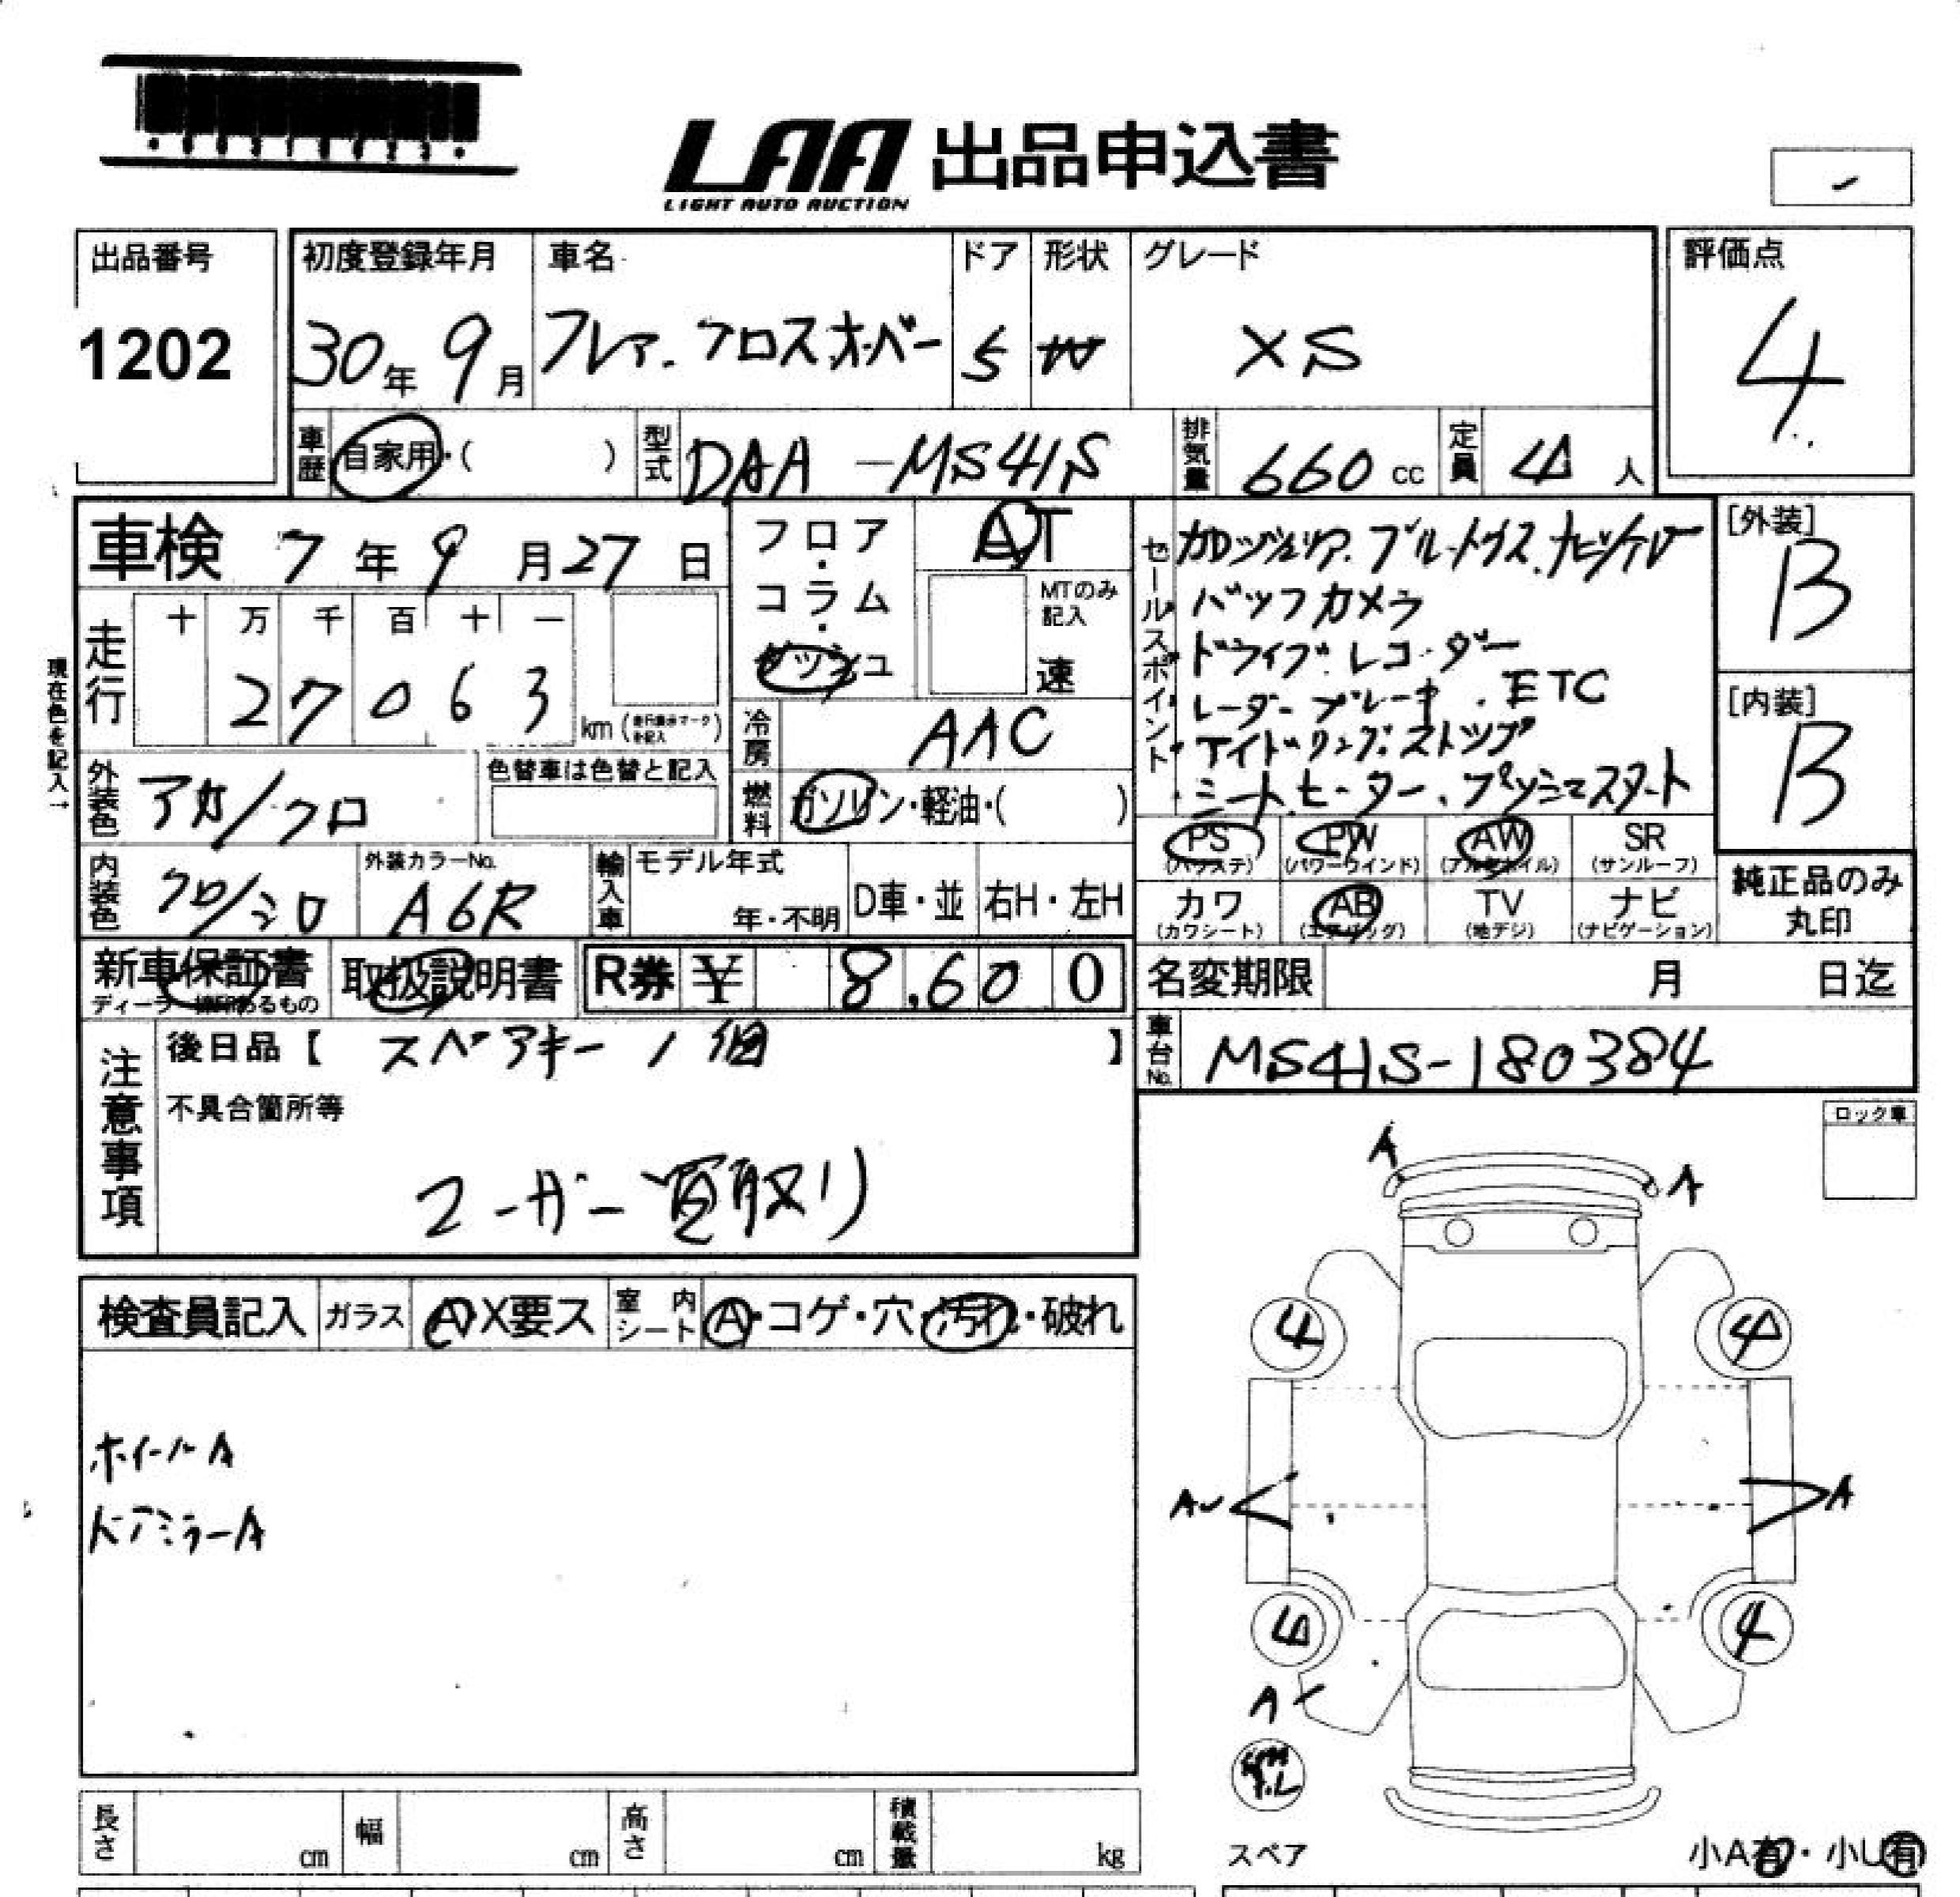 LAA 出品申込書
LIGHT AUTO AUCTION
出品番号
1202
初度登録年月
30年 9月
車名
フレア.クロスオーバー
ドア
5
形状
W
グレード
XS
評価点
4
車歴 自家用・( )
型式 DAA-MS41S
排気量 660 cc
定員 4 人
車検 7年 9月 27日
フロア・コラム・ダッシュ
AT
MTのみ記入
速
走行
十 万 千 百 十 一
2 7 0 6 3 km
現在色を記入→
冷房 AAC
外装色 アカ/クロ
色替車は色替と記入
燃料 ガソリン・軽油・( )
内装色 クロ/シロ
外装カラーNo.
A6R
輸入車
モデル年式
年・不明
D車・並
右H・左H
セールスポイント
カロッツェリア.ブルートゥス.ナビ/テレビ
バックカメラ
・ドライブ.レコーダー
・レーダーブレーキ . ETC
・アイドリングストップ
・シートヒーター.プッシュスタート
[外装]
B
[内装]
B
PS (パワステ)
PW (パワーウインド)
AW (アルミホイル)
SR (サンルーフ)
カワ (カワシート)
AB (エアバッグ)
TV (地デジ)
ナビ (ナビゲーション)
純正品のみ丸印
新車保証書
ディーラー捺印あるもの
取扱説明書
R券 ¥ 8,600
名変期限 月 日迄
車台No. MS41S-180384
注意事項
後日品【 スペアキー 1個 】
不具合箇所等
ユーザー買取り
ロック車
検査員記入
ガラス A・X要ス
室内シート A・コゲ・穴・汚れ・破れ
ホイールA
ドアミラーA
A
A
4
4
A
A
4
4
A
スペア
小A有・小U有
長さ cm
幅 cm
高さ cm
積載量 kg